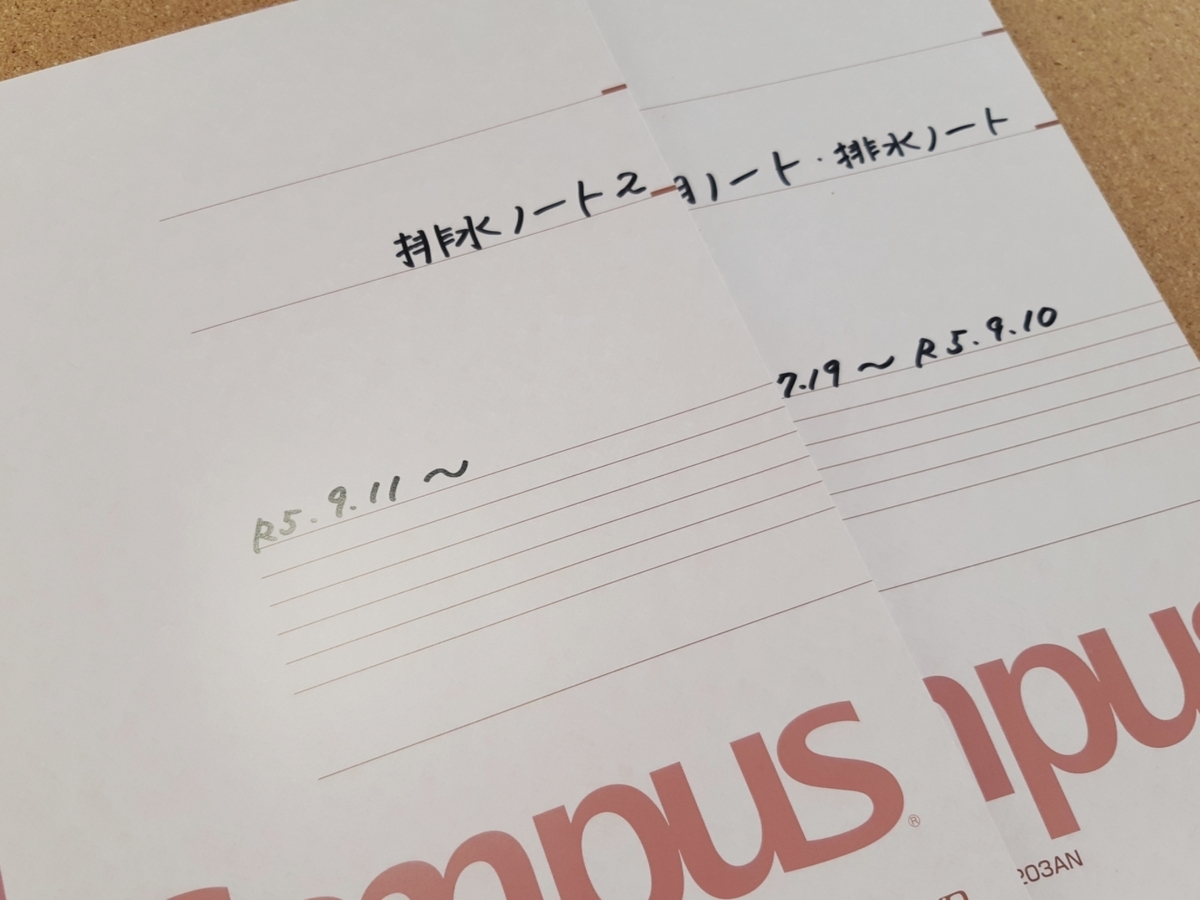 排水ノート2
R5.9.11～
ノート・排水ノート
7.19～R5.9.10
Campus
®
mpus
203AN